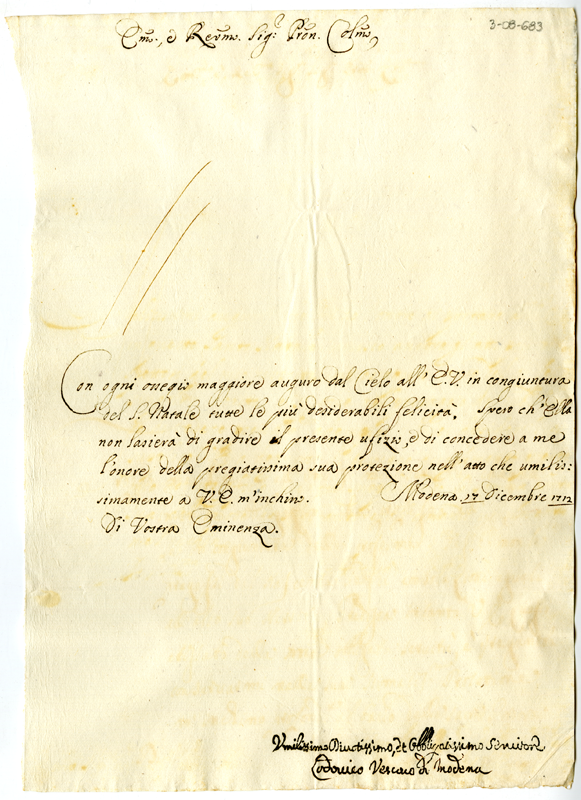 3-08-683
Em̃o., e Reṽmo. Sig.r Pr̃on. Colm̃o,
Con ogni ossegio maggiore auguro dal Cielo all' E.V. in congiuntura
del S. Natale tutte le più desiderabili felicità. Spero ch' Ella
non lasierà di gradire il presente ufizio, e di concedere a me
l'onore della pregiatissima sua protezione nell'atto che umilis:
simamente a V. E. m'inchino. Modena 17 Dicembre 1712
Di Vostra Eminenza.
Umilissimo Divotissimo, et Obbligatissimo Servitore
Lodovico Vescovo di Modena